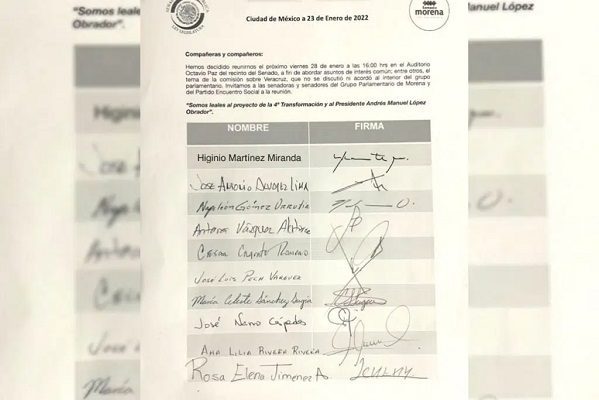 "Somos leales
Manuel López
Obrador".
SENADO
LEGISLATURA
morena
Ciudad de México a 23 de Enero de 2022
Compañeras y compañeros:
Hemos decidido reunirnos el próximo viernes 28 de enero a las 16:00 hrs en el Auditorio
Octavio Paz del recinto del Senado, a fin de abordar asuntos de interés común; entre otros, el
tema de la comisión sobre Veracruz, que no se discutió ni acordó al interior del grupo
parlamentario. Invitamos a las senadoras y senadores del Grupo Parlamentario de Morena y
del Partido Encuentro Social a la reunión.
"Somos leales al proyecto de la 4ª Transformación y al Presidente Andrés Manuel López
Obrador".
NOMBRE FIRMA
Higinio Martínez Miranda
José Antonio Álvarez Lima
Napoleón Gómez Urrutia
Antares Vázquez Alatorre
César Cravioto Romero
José Luis Pech Várguez
María Celeste Sánchez Sugía
José Narro Céspedes
Ana Lilia Rivera Rivera
Rosa Elena Jiménez A.
Higinio
José
Napo
Antar
César
José
María